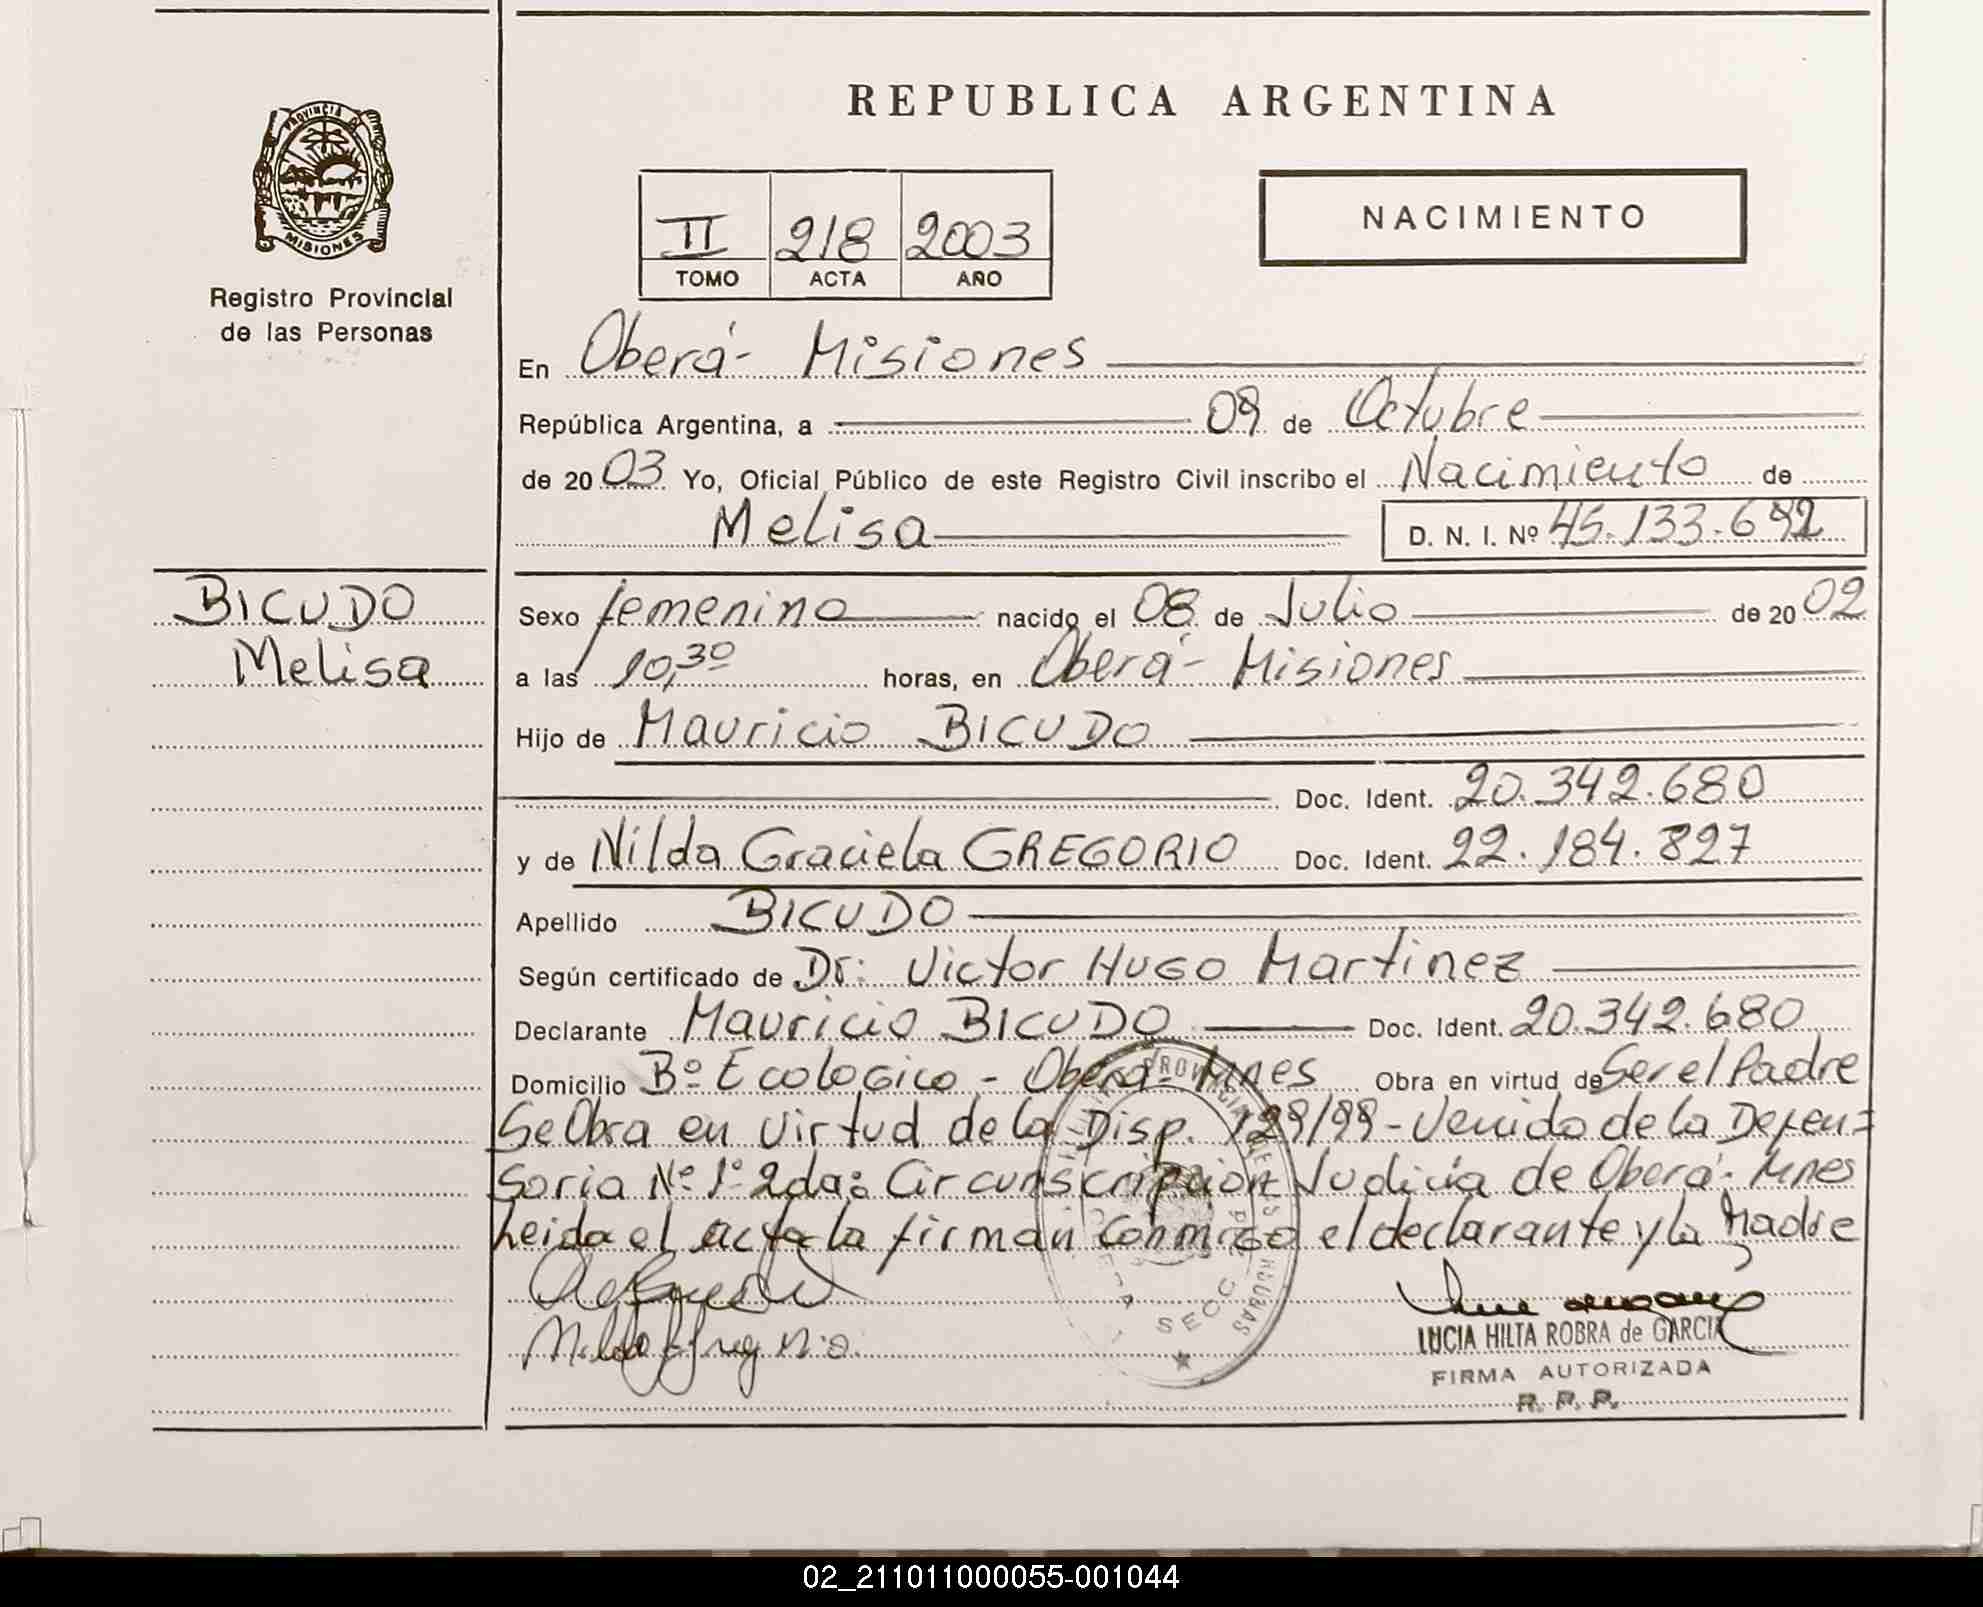 REPUBLICA ARGENTINA
PROVINCIA DE
MISIONES
Registro Provincial
de las Personas
II 218 2003
TOMO ACTA AÑO
NACIMIENTO
En Oberá - Misiones
República Argentina, a 09 de Octubre
de 20 03 Yo, Oficial Público de este Registro Civil inscribo el Nacimiento de
Melisa D. N. I. Nº 45.133.692
BICUDO
Melisa
Sexo femenino nacido el 08 de Julio de 20 02
a las 10,30 horas, en Oberá - Misiones
Hijo de Mauricio BICUDO
Doc. Ident. 20.342.680
y de Nilda Graciela GREGORIO Doc. Ident. 22.184.827
Apellido BICUDO
Según certificado de Dr: Victor HUGO Martinez
Declarante Mauricio BICUDO Doc. Ident. 20.342.680
Domicilio Bº Ecologico - Oberá - Mnes Obra en virtud de Ser el Padre
Se Obra en virtud de la Disp. 129/99 - Venido de la Defen=
soria Nº 1º 2da: Circunscripción Judicia de Oberá - Mnes
Leida el acta la firman conmigo el declarante y la Madre
LUCIA HILTA ROBRA de GARCIA
FIRMA AUTORIZADA
R. P. P.
02_211011000055-001044